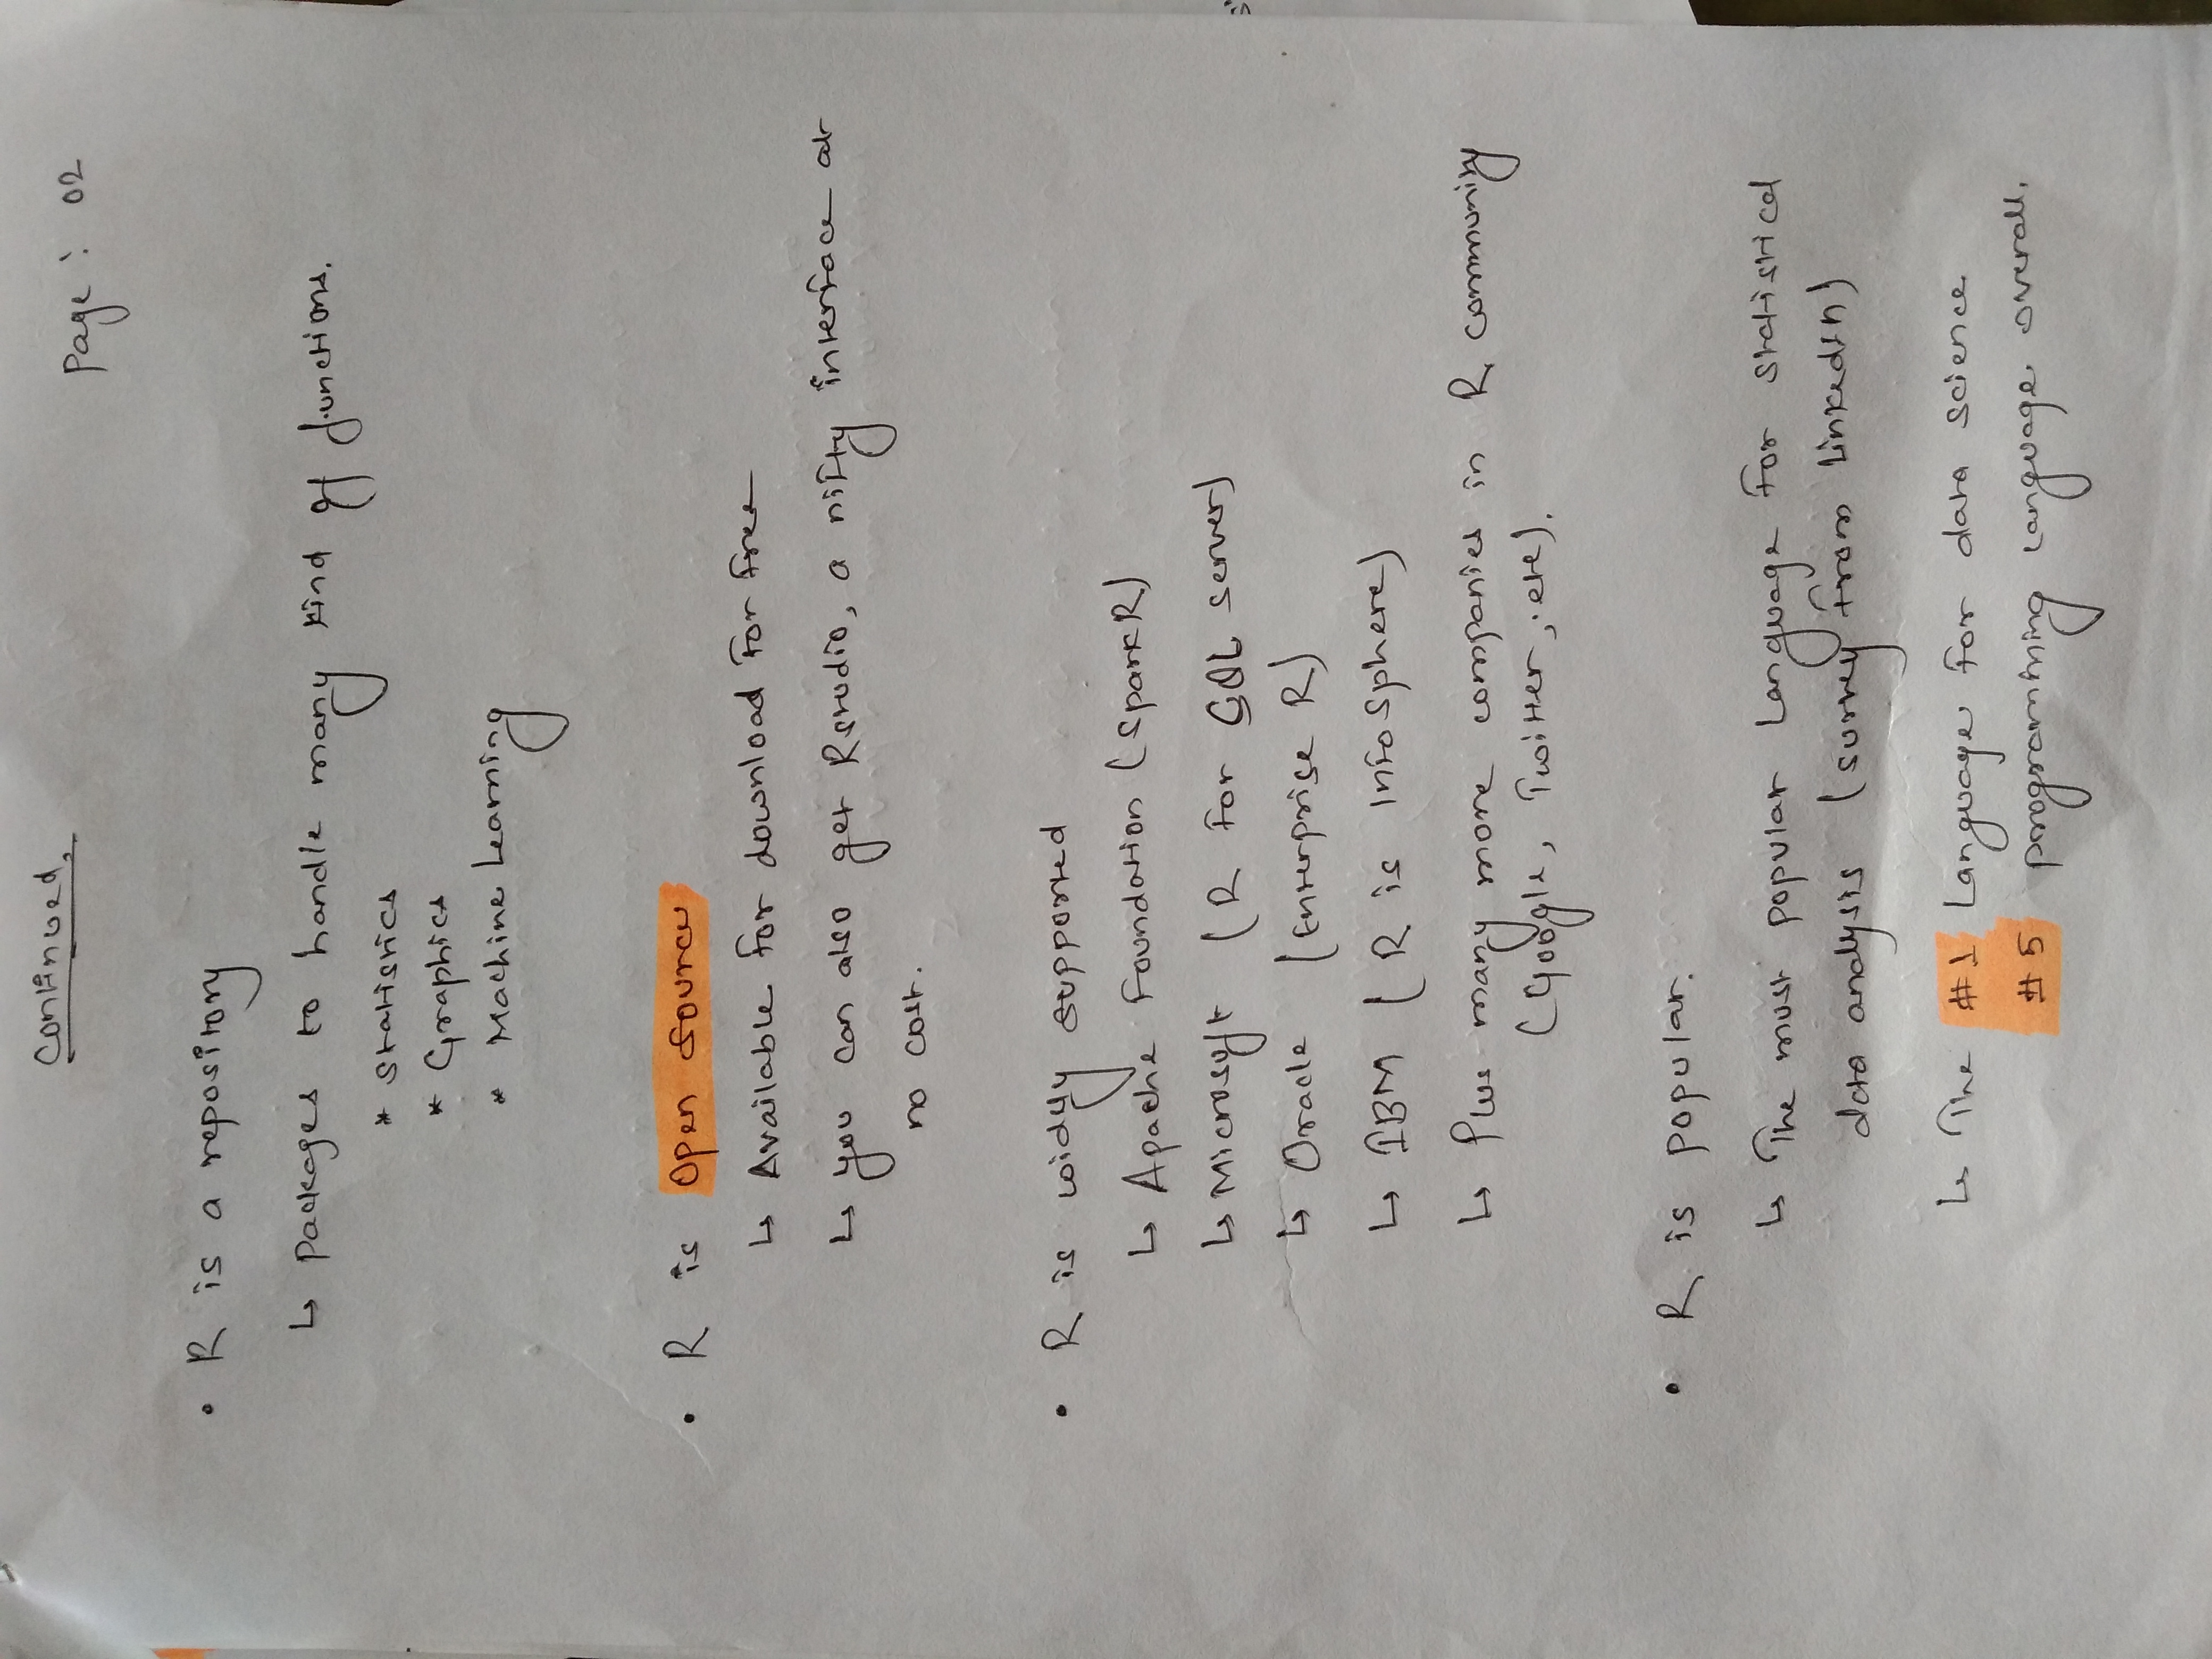 Continued.
Page: 02
• R is a repository
↳ Packages to handle many kind of functions.
* Statistics
* Graphics
* Machine Learning
• R is Open Source
↳ Available for download for free
↳ you can also get Rstudio, a nifty interface at
no cost.
• R is widly supported
↳ Apache Foundation (SparkR)
↳ Microsoft (R for SQL server)
↳ Oracle (Enterprise R)
↳ IBM (R is InfoSphere)
↳ Plus many more companies in R community
(Google, Twitter, etc).
• R is popular.
↳ The must popular language for statistical
data analysis (survey from LinkedIn)
↳ The #1 Language for data science
#5 programming language overall.